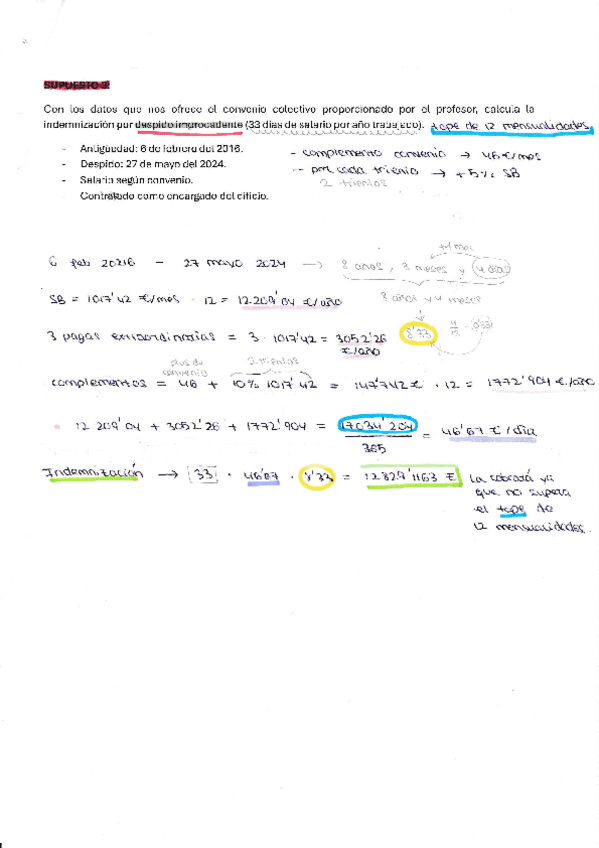 SUPUESTO 3:
Con los datos que nos ofrece el convenio colectivo proporcionado por el profesor, calcula la
indemnización por despido improcedente (33 días de salario por año trabajado). tope de 12 mensualidades.
- Antigüedad: 6 de febrero del 2016.
- Despido: 27 de mayo del 2024.
- Salario según convenio.
- Contratado como encargado del oficio.
- complemento convenio → 46 €/mes
- por cada trienio → +5% SB
2 trienios
+1 mes
6 feb 2016 - 27 mayo 2024 → 8 años, 3 meses y 4 días
8 años y 4 meses
SB = 1017'42 €/mes · 12 = 12.209'04 €/año
3 pagas extraordinarias = 3 · 1017'42 = 3052'26 €/año
8'33
4/12 = 0'33
plus de convenio
2 trienios
complementos = 46 + 10% 1017'42 = 147'742 € · 12 = 1772'904 €/año
12 209'04 + 3052'26 + 1772'904 = 17034'204 / 365 = 46'67 €/día
Indemnización → 33 · 46'67 · 8'33 = 12829'1163 €
La cobrará ya
que no supera
el tope de
12 mensualidades.